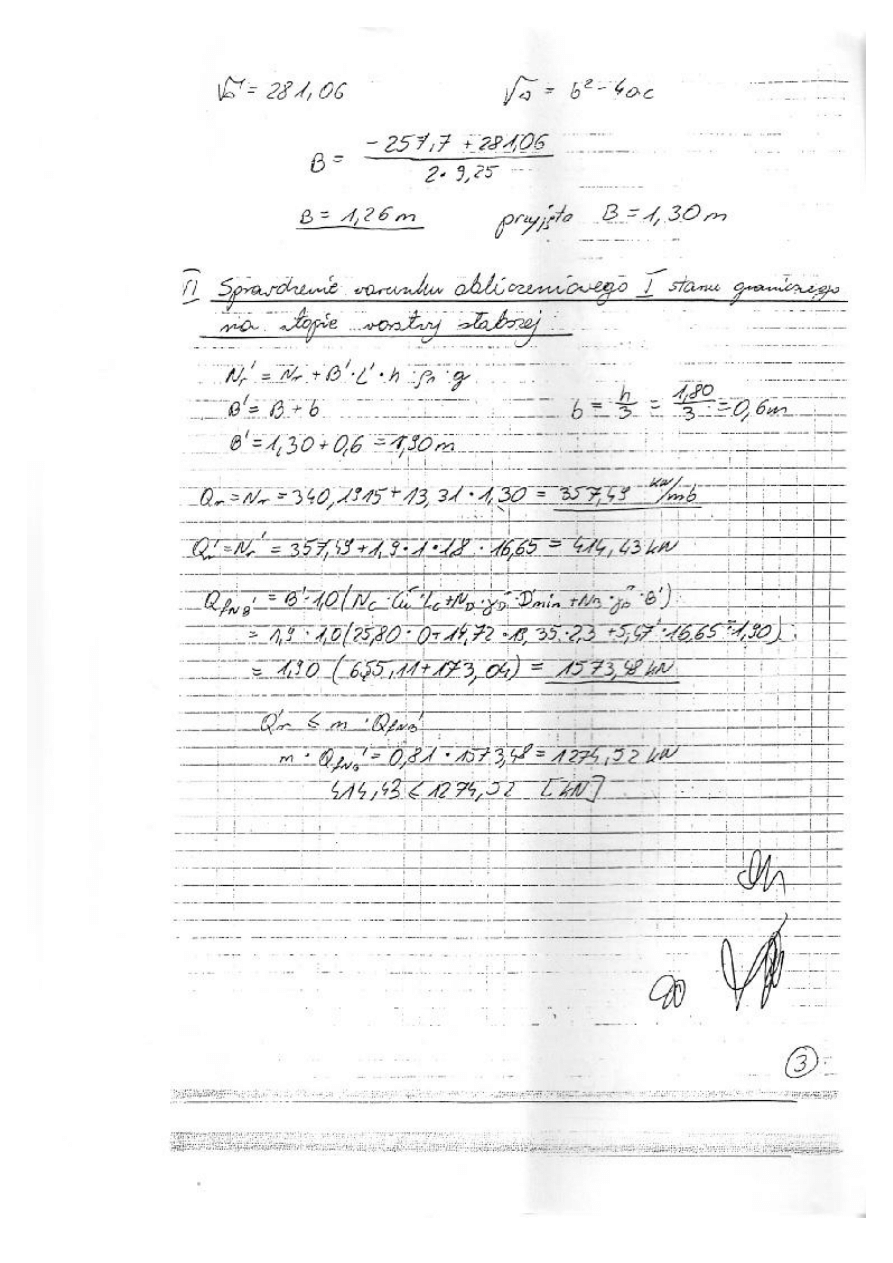 √Δ = 281,06 √Δ = b² - 4ac
B = (-257,7 + 281,06) / (2 · 9,25)
B = 1,26 m przyjęto B = 1,30 m
II Sprawdzenie warunku obliczeniowego I stanu granicznego
na stopie warstwy słabszej:
Nr' = Nr + B' · L' · h · ρn · g
B' = B + b b = h/3 = 1,80/3 = 0,6 m
B' = 1,30 + 0,6 = 1,90 m
Qr = Nr = 340,1915 + 13,31 · 1,30 = 357,49 kN/mb
Qr' = Nr' = 357,49 + 1,9 · 1 · 1,8 · 16,65 = 414,43 kN
QfNB' = B' · 1,0 (NC · Cu · iC + ND · γD · D'min + NB · γB · B')
= 1,9 · 1,0 (25,80 · 0 + 14,72 · 19,35 · 2,3 + 5,47 · 16,65 · 1,90)
= 1,90 (655,11 + 173,04) = 1573,48 kN
Q'r ≤ m · QfNB'
m · QfNB' = 0,81 · 1573,48 = 1274,52 kN
414,43 < 1274,52 [kN]
3